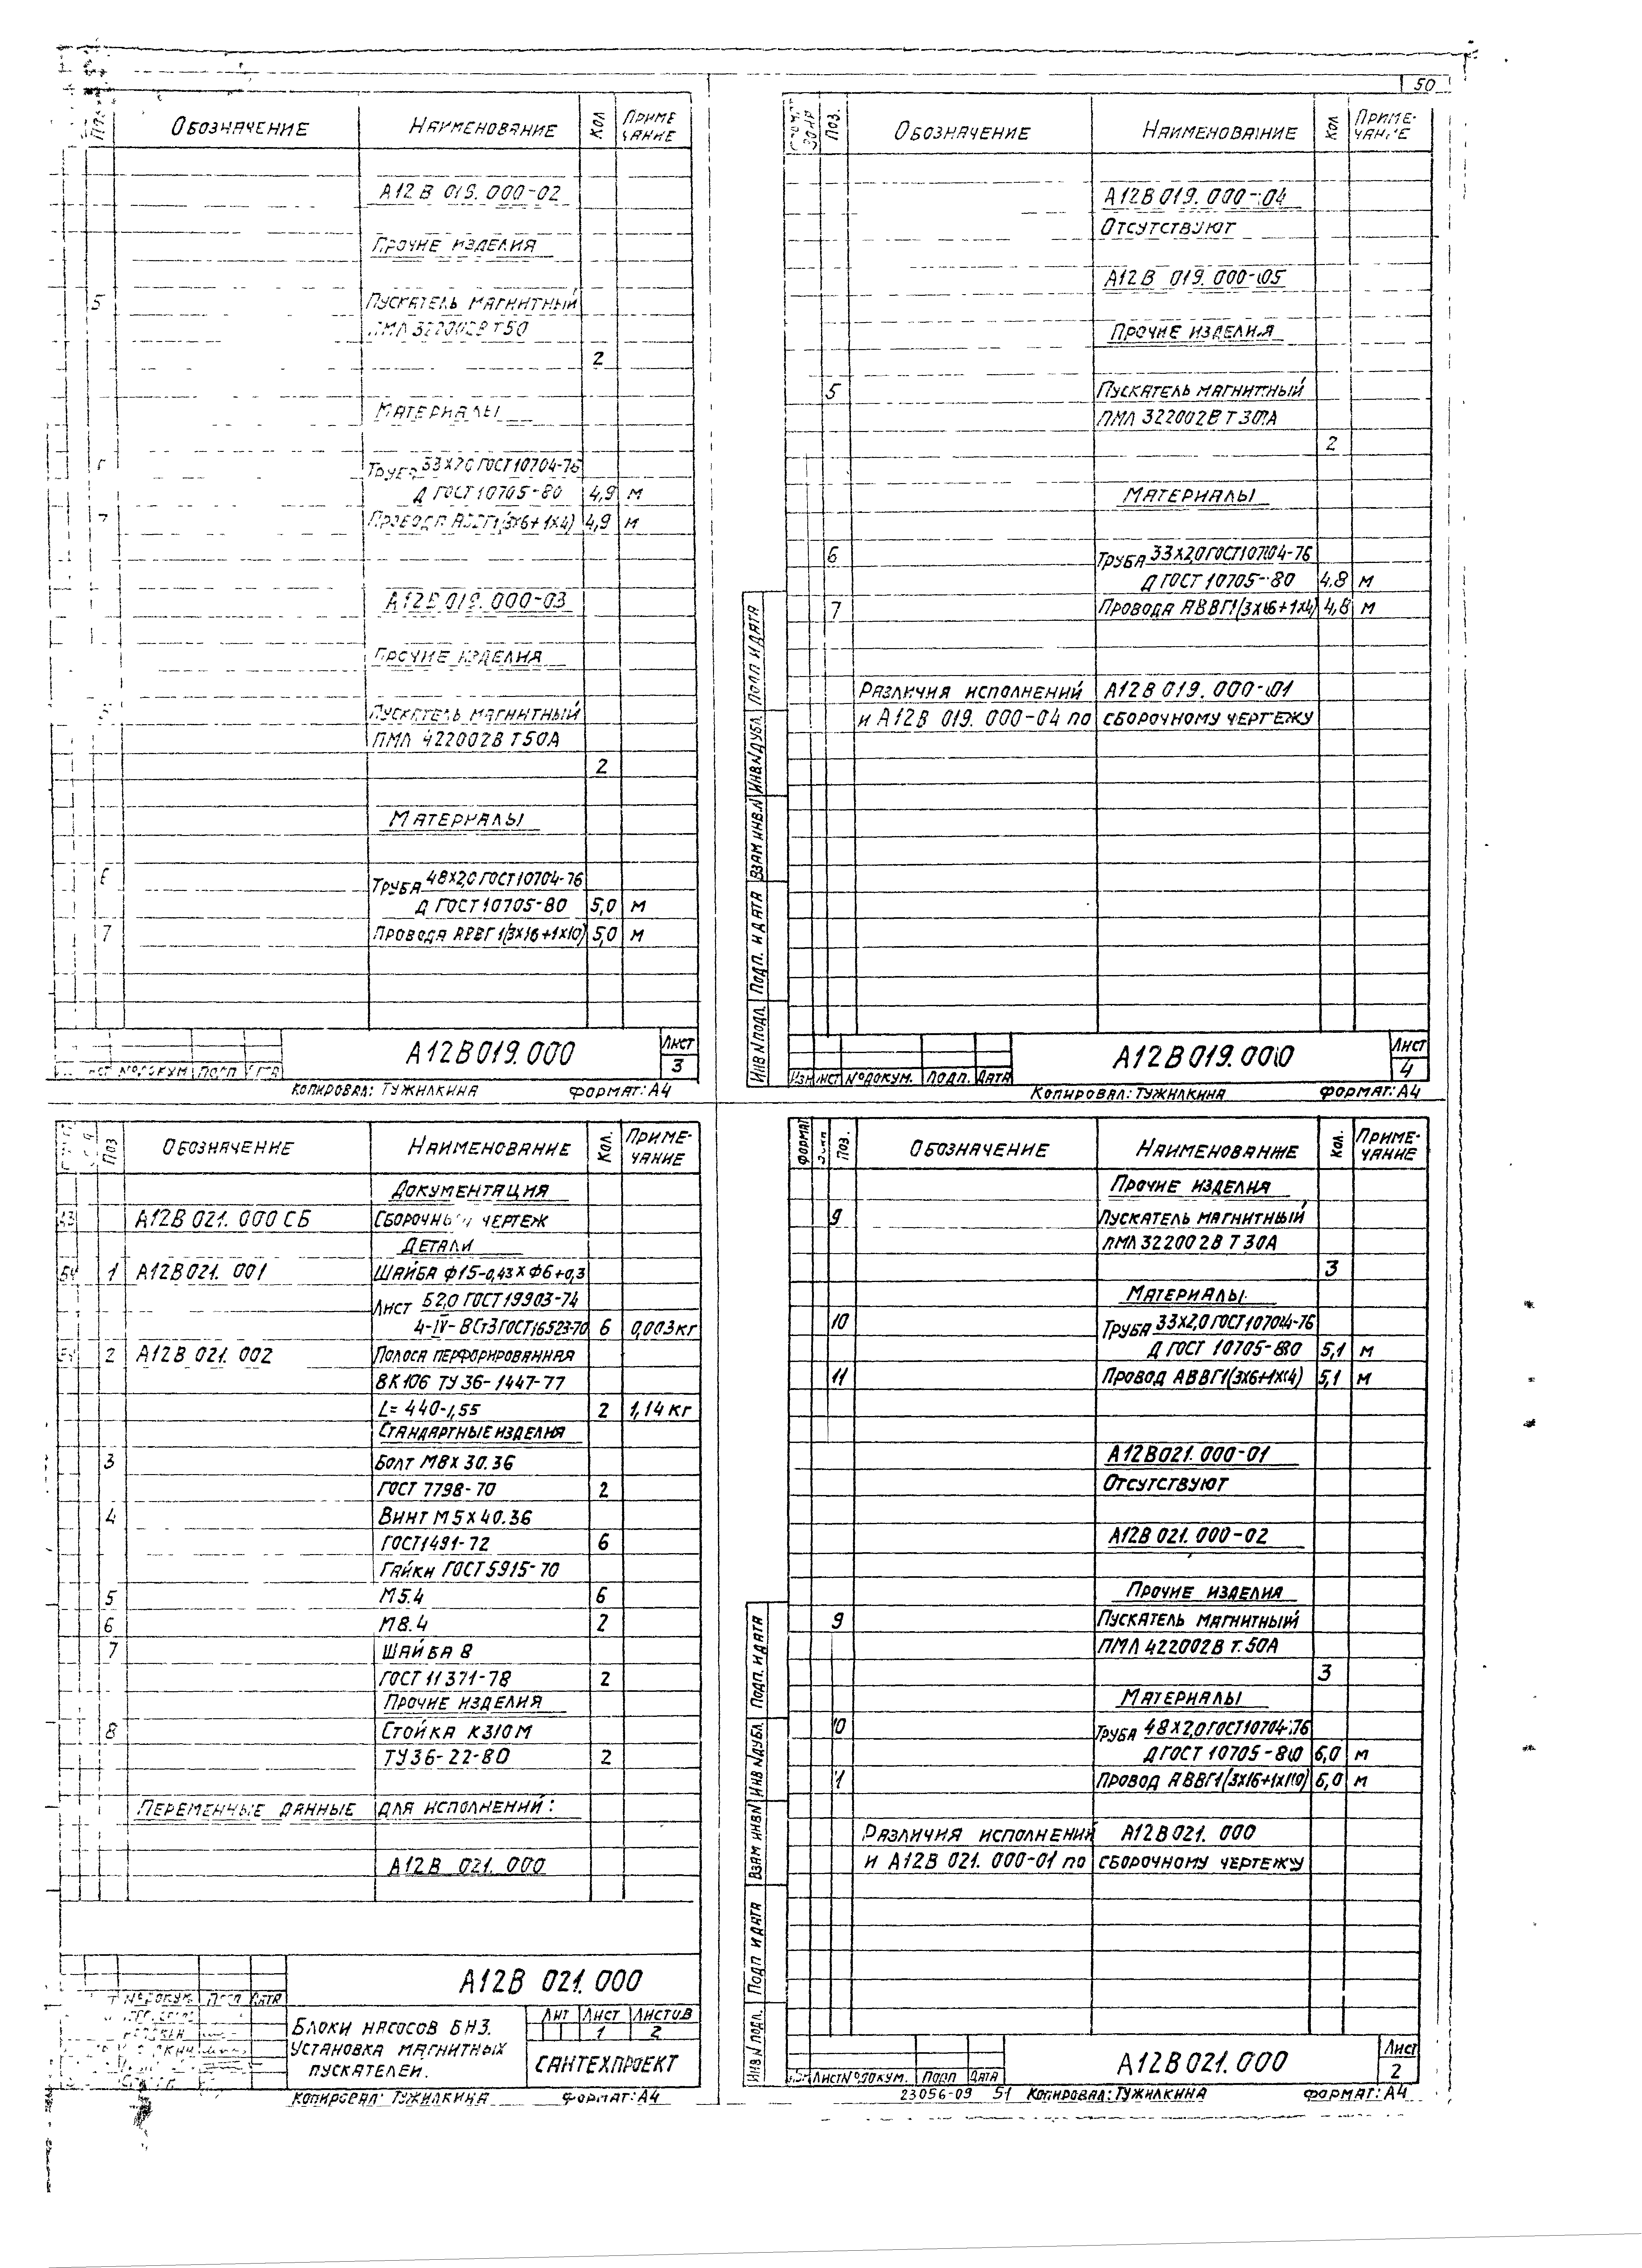 50
ОБОЗНАЧЕНИЕ НАИМЕНОВАНИЕ КОЛ ПРИМЕ
ЧАНИЕ
А12В 019.000-02
ПРОЧИЕ ИЗДЕЛИЯ
5 ПУСКАТЕЛЬ МАГНИТНЫЙ
ПМЛ 322002В Т50
2
МАТЕРИАЛЫ
ТРУБА 33Х2,0 ГОСТ 10704-76
Д ГОСТ 10705-80 4,9 М
7 4,9 М
А12В 019.000-03
ПРОЧИЕ ИЗДЕЛИЯ
ПУСКАТЕЛЬ МАГНИТНЫЙ
ПМЛ 422002В Т50А
2
МАТЕРИАЛЫ
ТРУБА 48Х2,0 ГОСТ 10704-76
Д ГОСТ 10705-80 5,0 М
7 ПРОВОДА АВВГ1(3Х16+1Х10) 5,0 М
А12В019.000
ЛИСТ
3
№ДОКУМ ПОДП
КОПИРОВАЛ: ТУЖИЛКИНА ФОРМАТ: А4
ПОЗ. ОБОЗНАЧЕНИЕ НАИМЕНОВАНИЕ КОЛ ПРИМЕ-
ЧАНИЕ
А12В 019.000-04
ОТСУТСТВУЮТ
А12В 019.000-05
ПРОЧИЕ ИЗДЕЛИЯ
5 ПУСКАТЕЛЬ МАГНИТНЫЙ
ПМЛ 322002В Т30А
2
МАТЕРИАЛЫ
6 ТРУБА 33Х2,0 ГОСТ 10704-76
Д ГОСТ 10705-80 4,8 М
7 ПРОВОДА АВВГ1(3Х6+1Х4) 4,8 М
РАЗЛИЧИЯ ИСПОЛНЕНИЙ А12В 019.000-01
И А12В 019.000-04 ПО СБОРОЧНОМУ ЧЕРТЕЖУ
ИНВ N ПОДЛ. ПОДП. И ДАТА ВЗАМ ИНВ.N ИНВ N ДУБЛ. ПОДП И ДАТА
А12В019.000
ЛИСТ
4
ИЗМ ЛИСТ №ДОКУМ. ПОДП. ДАТА
КОПИРОВАЛ: ТУЖИЛКИНА ФОРМАТ: А4
ПОЗ ОБОЗНАЧЕНИЕ НАИМЕНОВАНИЕ КОЛ. ПРИМЕ-
ЧАНИЕ
ДОКУМЕНТАЦИЯ
А12В 021.000 СБ СБОРОЧНЫЙ ЧЕРТЕЖ
ДЕТАЛИ
1 А12В021.001 ШАЙБА Ф15-0,43 Х Ф6+0,3
ЛИСТ Б2,0 ГОСТ 19903-74
4-IV-ВСт3 ГОСТ 16523-70 6 0,003кг
2 А12В 021.002 ПОЛОСА ПЕРФОРИРОВАННАЯ
ВК106 ТУ 36-1447-77
L=440-1,55 2 1,14 кг
СТАНДАРТНЫЕ ИЗДЕЛИЯ
3 БОЛТ М8Х30.36
ГОСТ 7798-70 2
4 ВИНТ М5Х40.36
ГОСТ1491-72 6
ГАЙКИ ГОСТ 5915-70
5 М5.4 6
6 М8.4 2
7 ШАЙБА 8
ГОСТ 11371-78 2
ПРОЧИЕ ИЗДЕЛИЯ
8 СТОЙКА К310М
ТУ36-22-80 2
ПЕРЕМЕННЫЕ ДАННЫЕ ДЛЯ ИСПОЛНЕНИЙ:
А12В 021.000
А12В 021.000
№ДОКУМ. ПОДП ДАТА
БЛОКИ НАСОСОВ БН3.
УСТАНОВКА МАГНИТНЫХ
ПУСКАТЕЛЕЙ.
ЛИТ ЛИСТ ЛИСТОВ
1 2
САНТЕХПРОЕКТ
КОПИРОВАЛ: ТУЖИЛКИНА ФОРМАТ: А4
ФОРМАТ ПОЗ. ОБОЗНАЧЕНИЕ НАИМЕНОВАНИЕ КОЛ. ПРИМЕ-
ЧАНИЕ
ПРОЧИЕ ИЗДЕЛИЯ
9 ПУСКАТЕЛЬ МАГНИТНЫЙ
ПМЛ 322002В Т30А
3
МАТЕРИАЛЫ
10 ТРУБА 33Х2,0 ГОСТ 10704-76
Д ГОСТ 10705-80 5,1 М
11 ПРОВОД АВВГ1(3Х6+1Х4) 5,1 М
А12В021.000-01
ОТСУТСТВУЮТ
А12В 021.000-02
ПРОЧИЕ ИЗДЕЛИЯ
9 ПУСКАТЕЛЬ МАГНИТНЫЙ
ПМЛ 422002В Т.50А
3
МАТЕРИАЛЫ
10 ТРУБА 48Х2,0 ГОСТ 10704-76
Д ГОСТ 10705-80 6,0 М
ПРОВОД АВВГ1(3Х16+1Х10) 6,0 М
РАЗЛИЧИЯ ИСПОЛНЕНИЙ А12В021.000
И А12В 021.000-01 ПО СБОРОЧНОМУ ЧЕРТЕЖУ
ИНВ N ПОДЛ. ПОДП И ДАТА ВЗАМ ИНВ N ИНВ N ДУБЛ ПОДП. И ДАТА
А12В021.000
ЛИСТ
2
ЛИСТ №ДОКУМ. ПОДП ДАТА
23056-09 51 КОПИРОВАЛ: ТУЖИЛКИНА ФОРМАТ: А4